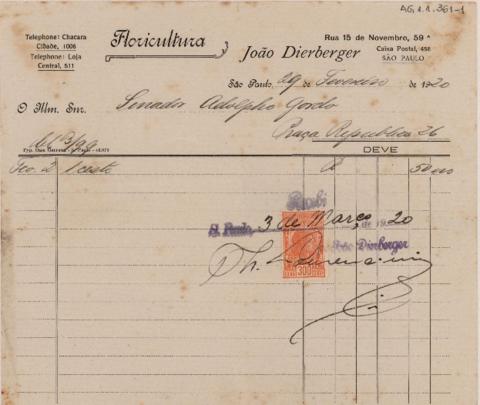 AG.1.1.361-1
Telephone: Chacara
Cidade, 1006
Telephone: Loja
Central, 511
Floricultura
João Dierberger
Rua 15 de Novembro, 59ᴬ
Caixa Postal, 458
SÃO PAULO
São Paulo, 29 de Fevereiro de 1920
O Illm. Snr. Senador Adolpho Gordo
Praça Republica 26
DEVE
Feo. 2 1 cesta
Recebi
S. Paulo, 3 de Março de 1920
João Dierberger
300